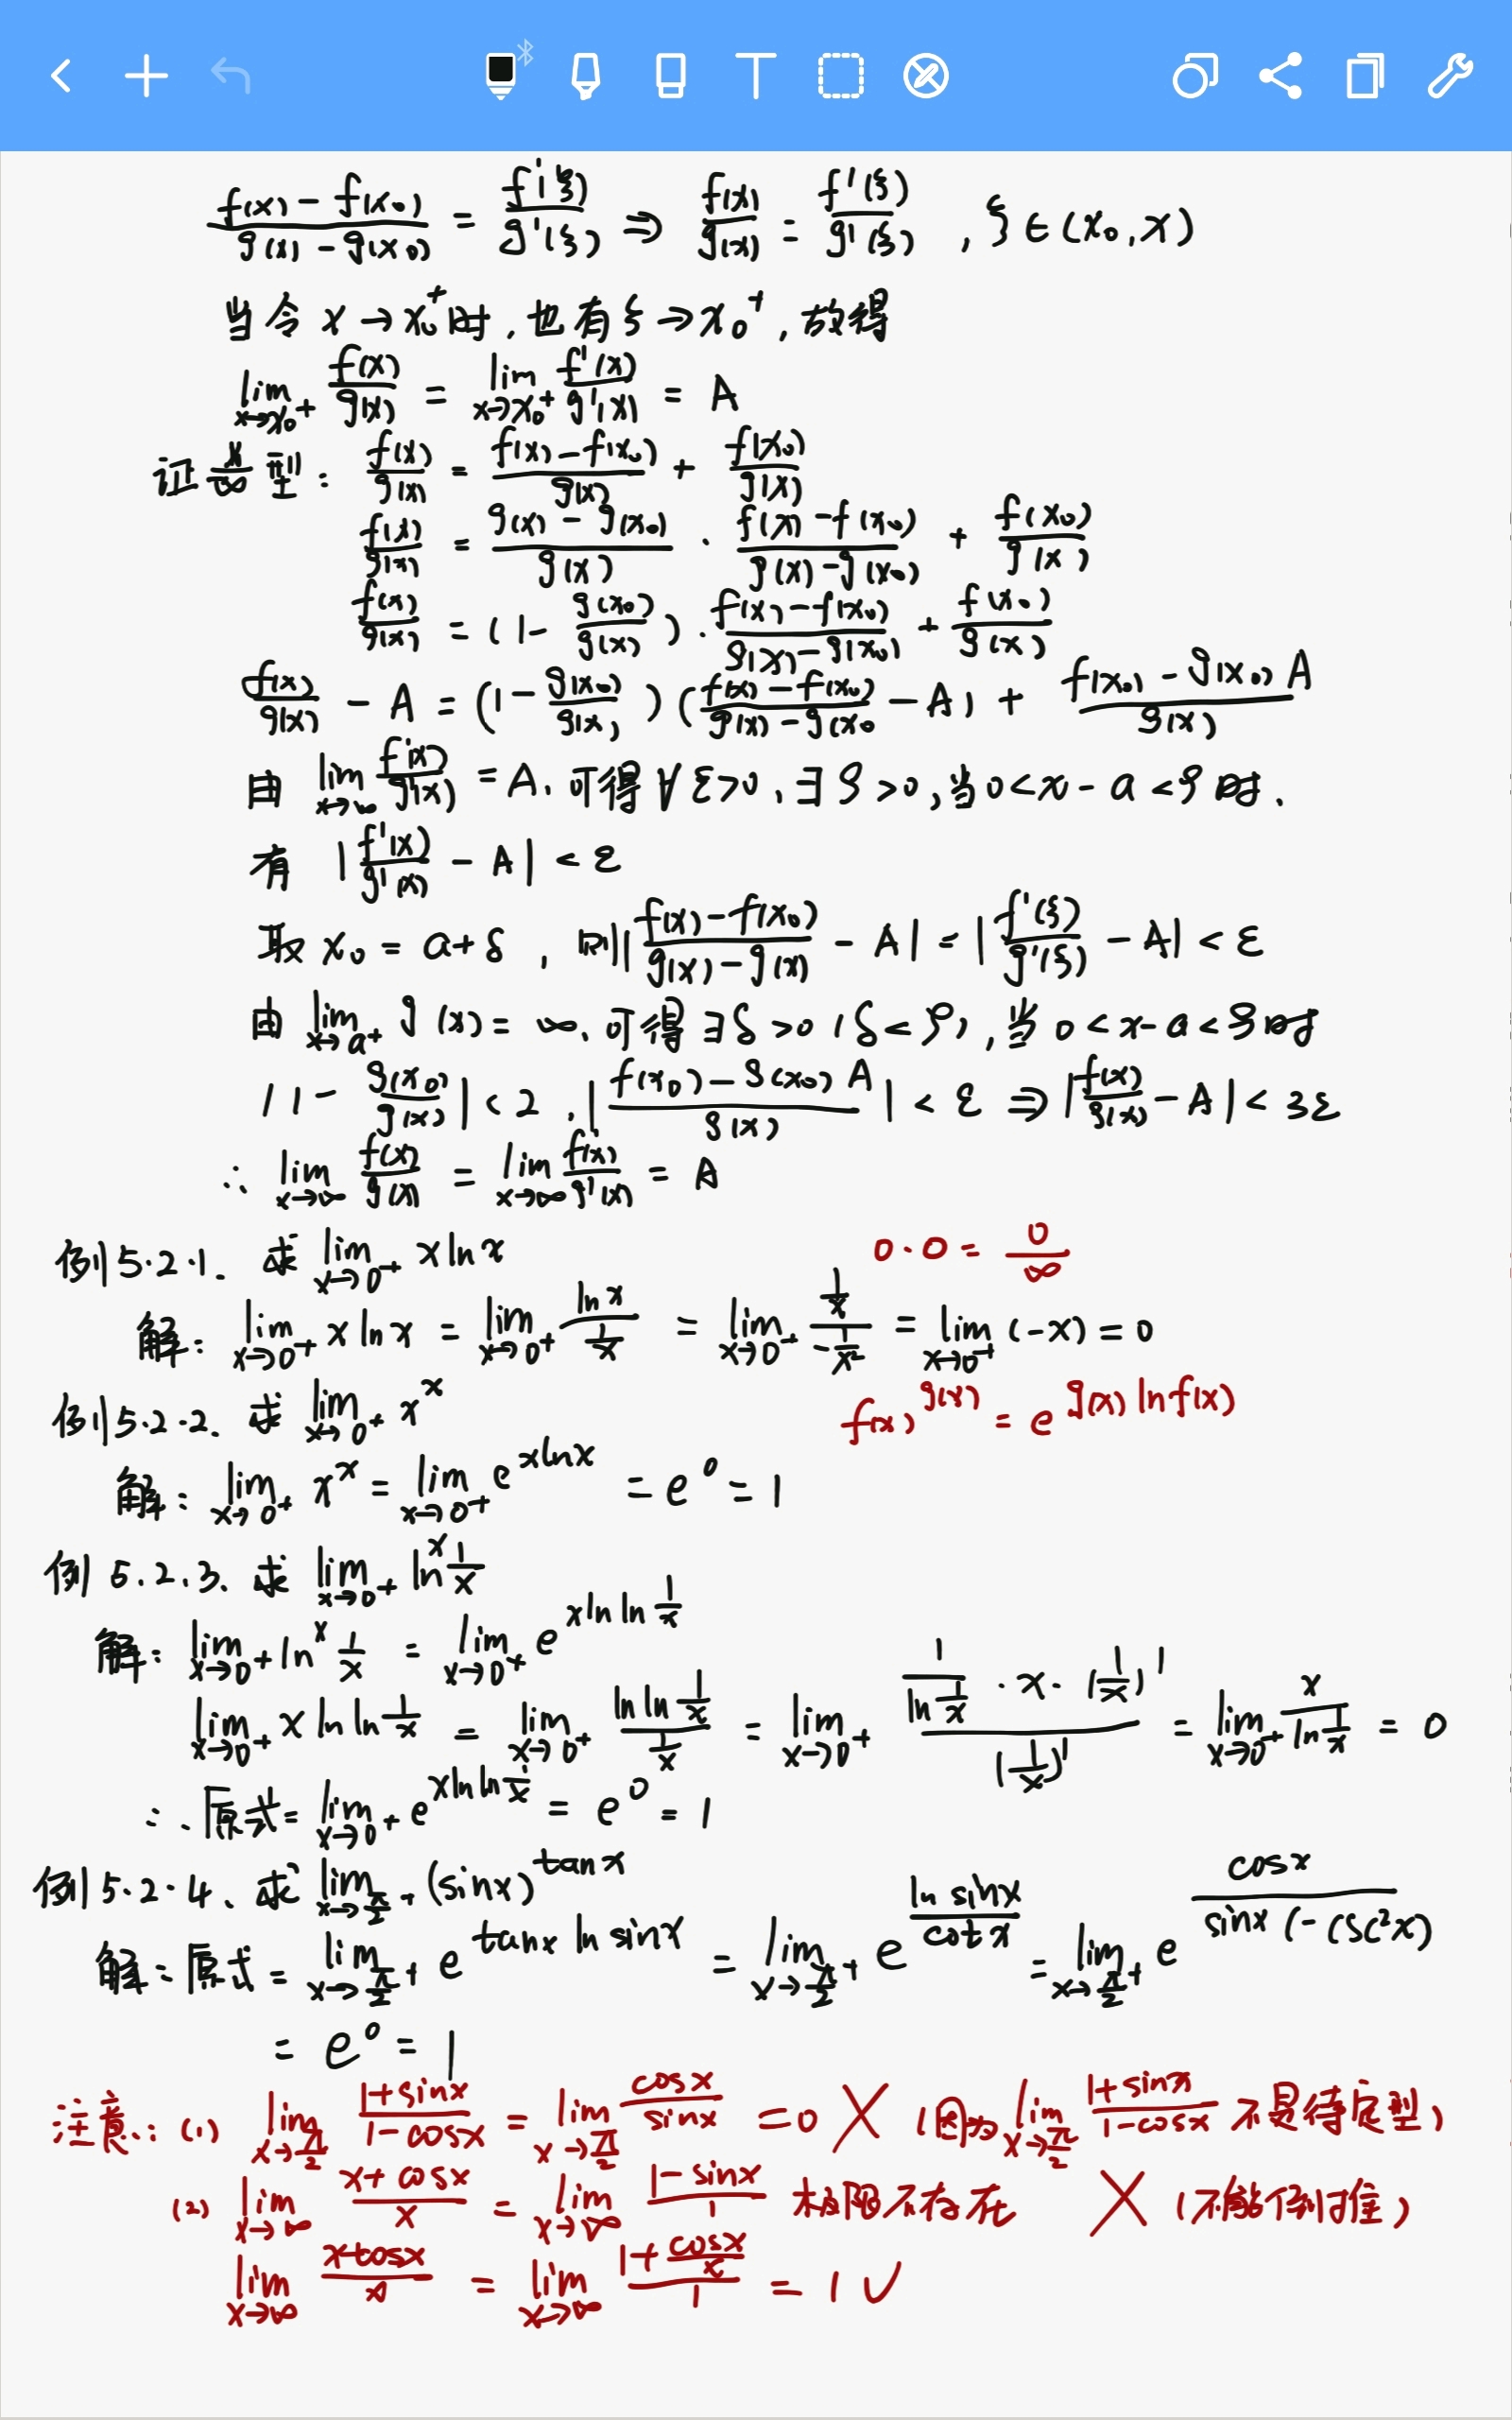 (f(x) - f(x₀))/(g(x) - g(x₀)) = f'(ξ)/g'(ξ) ⇒ f(x)/g(x) = f'(ξ)/g'(ξ) , ξ ∈ (x₀, x)
当令 x → x₀⁺ 时, 也有 ξ → x₀⁺, 故得
lim_{x→x₀⁺} f(x)/g(x) = lim_{x→x₀⁺} f'(x)/g'(x) = A
证 x/∞ 型: f(x)/g(x) = (f(x) - f(x₀))/g(x) + f(x₀)/g(x)
f(x)/g(x) = (g(x) - g(x₀))/g(x) · (f(x) - f(x₀))/(g(x) - g(x₀)) + f(x₀)/g(x)
f(x)/g(x) = (1 - g(x₀)/g(x)) · (f(x) - f(x₀))/(g(x) - g(x₀)) + f(x₀)/g(x)
f(x)/g(x) - A = (1 - g(x₀)/g(x)) ((f(x) - f(x₀))/(g(x) - g(x₀) - A) + (f(x₀) - g(x₀) A)/g(x)
由 lim_{x→∞} f'(x)/g'(x) = A, 可得 ∀ε>0, ∃ρ>0, 当 0<x-a<ρ 时,
有 |f'(x)/g'(x) - A| < ε
取 x₀ = a+δ , 则 |(f(x) - f(x₀))/(g(x) - g(x)) - A| = |f'(ξ)/g'(ξ) - A| < ε
由 lim_{x→a⁺} g(x) = ∞, 可得 ∃δ>0 (δ<ρ), 当 0<x-a<ρ 时
|1 - g(x₀)/g(x)| < 2 , |(f(x₀) - g(x₀) A)/g(x)| < ε ⇒ |f(x)/g(x) - A| < 3ε
∴ lim_{x→∞} f(x)/g(x) = lim_{x→∞} f'(x)/g'(x) = A
例5.2.1. 求 lim_{x→0⁺} x ln x 0·0 = 0/∞
解: lim_{x→0⁺} x ln x = lim_{x→0⁺} ln x/(1/x) = lim_{x→0⁺} (1/x)/(-1/x²) = lim_{x→0⁺} (-x) = 0
例5.2.2. 求 lim_{x→0⁺} x^x f(x)^{g(x)} = e^{g(x) ln f(x)}
解: lim_{x→0⁺} x^x = lim_{x→0⁺} e^{x ln x} = e⁰ = 1
例5.2.3. 求 lim_{x→0⁺} ln^x 1/x
解: lim_{x→0⁺} ln^x 1/x = lim_{x→0⁺} e^{x ln ln 1/x}
lim_{x→0⁺} x ln ln 1/x = lim_{x→0⁺} (ln ln 1/x)/(1/x) = lim_{x→0⁺} (1/(ln 1/x) · x · (1/x)')/(1/x)' = lim_{x→0⁺} x/(ln 1/x) = 0
∴ 原式 = lim_{x→0⁺} e^{x ln ln 1/x} = e⁰ = 1
例5.2.4. 求 lim_{x→π/2⁺} (sin x)^{tan x}
解: 原式 = lim_{x→π/2⁺} e^{tan x ln sin x} = lim_{x→π/2⁺} e^{ln sin x/cot x} = lim_{x→π/2⁺} e^{cos x/(sin x (-csc² x)}
= e⁰ = 1
注意: (1) lim_{x→π/2} (1+sin x)/(1-cos x) = lim_{x→π/2} cos x/sin x = 0 ✗ (因为 lim_{x→π/2} (1+sin x)/(1-cos x) 不是待定型)
(2) lim_{x→∞} (x+cos x)/x = lim_{x→∞} (1-sin x)/1 极限不存在 ✗ (不能倒推)
lim_{x→∞} (x+cos x)/x = lim_{x→∞} (1+cos x/x)/1 = 1 ✓